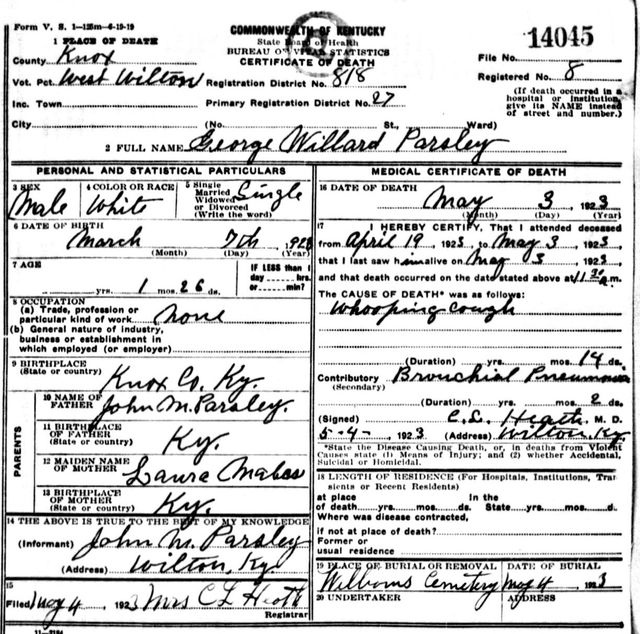 Form V. S. 1—125m—6-19-19
COMMONWEALTH OF KENTUCKY
State Board of Health
BUREAU OF VITAL STATISTICS
CERTIFICATE OF DEATH
14045
1 PLACE OF DEATH
County Knox
File No.
Vot. Pct. West Wilton Registration District No. 818
Registered No. 8
Inc. Town Primary Registration District No. 27
(If death occurred in a hospital or institution, give its NAME instead of street and number.)
City (No. St., Ward)
2 FULL NAME George Willard Parsley
PERSONAL AND STATISTICAL PARTICULARS
3 SEX Male
4 COLOR OR RACE White
5 Single Married Widowed or Divorced (Write the word) Single
6 DATE OF BIRTH
March 7th, 1923
(Month) (Day) (Year)
7 AGE
yrs. 1 mos. 26 ds.
IF LESS than 1 day hrs. or min?
8 OCCUPATION
(a) Trade, profession or particular kind of work None
(b) General nature of industry, business or establishment in which employed (or employer)
9 BIRTHPLACE
(State or country) Knox Co. Ky.
PARENTS
10 NAME OF FATHER John M. Parsley.
11 BIRTHPLACE OF FATHER (State or country) Ky.
12 MAIDEN NAME OF MOTHER Laura
13 BIRTHPLACE OF MOTHER (State or country) Ky.
14 THE ABOVE IS TRUE TO THE BEST OF MY KNOWLEDGE
(Informant) John M. Parsley
(Address) Wilton, Ky.
15
Filed May 4 1923 Mrs C L Heath
Registrar
11—2184
MEDICAL CERTIFICATE OF DEATH
16 DATE OF DEATH
May 3, 1923
(Month) (Day) (Year)
17 I HEREBY CERTIFY, That I attended deceased
from April 19, 1923, to May 3, 1923,
that I last saw him alive on May 3, 1923,
and that death occurred on the date stated above at 11 30 a.m.
The CAUSE OF DEATH* was as follows:
Whooping cough
(Duration) yrs. mos. 14 ds.
Contributory Bronchial Pneumonia
(Secondary)
(Duration) yrs. mos. 2 ds.
(Signed) C. L. Heath, M. D.
5-4-, 1923 (Address) Wilton, Ky.
*State the Disease Causing Death, or, in deaths from Violent Causes state (1) Means of Injury; and (2) whether Accidental, Suicidal or Homicidal.
18 LENGTH OF RESIDENCE (For Hospitals, Institutions, Transients or Recent Residents)
at place of death yrs. mos. ds. In the State yrs. mos. ds.
Where was disease contracted,
if not at place of death?
Former or usual residence
19 PLACE OF BURIAL OR REMOVAL DATE OF BURIAL
Cemetery May 4 1923
20 UNDERTAKER ADDRESS